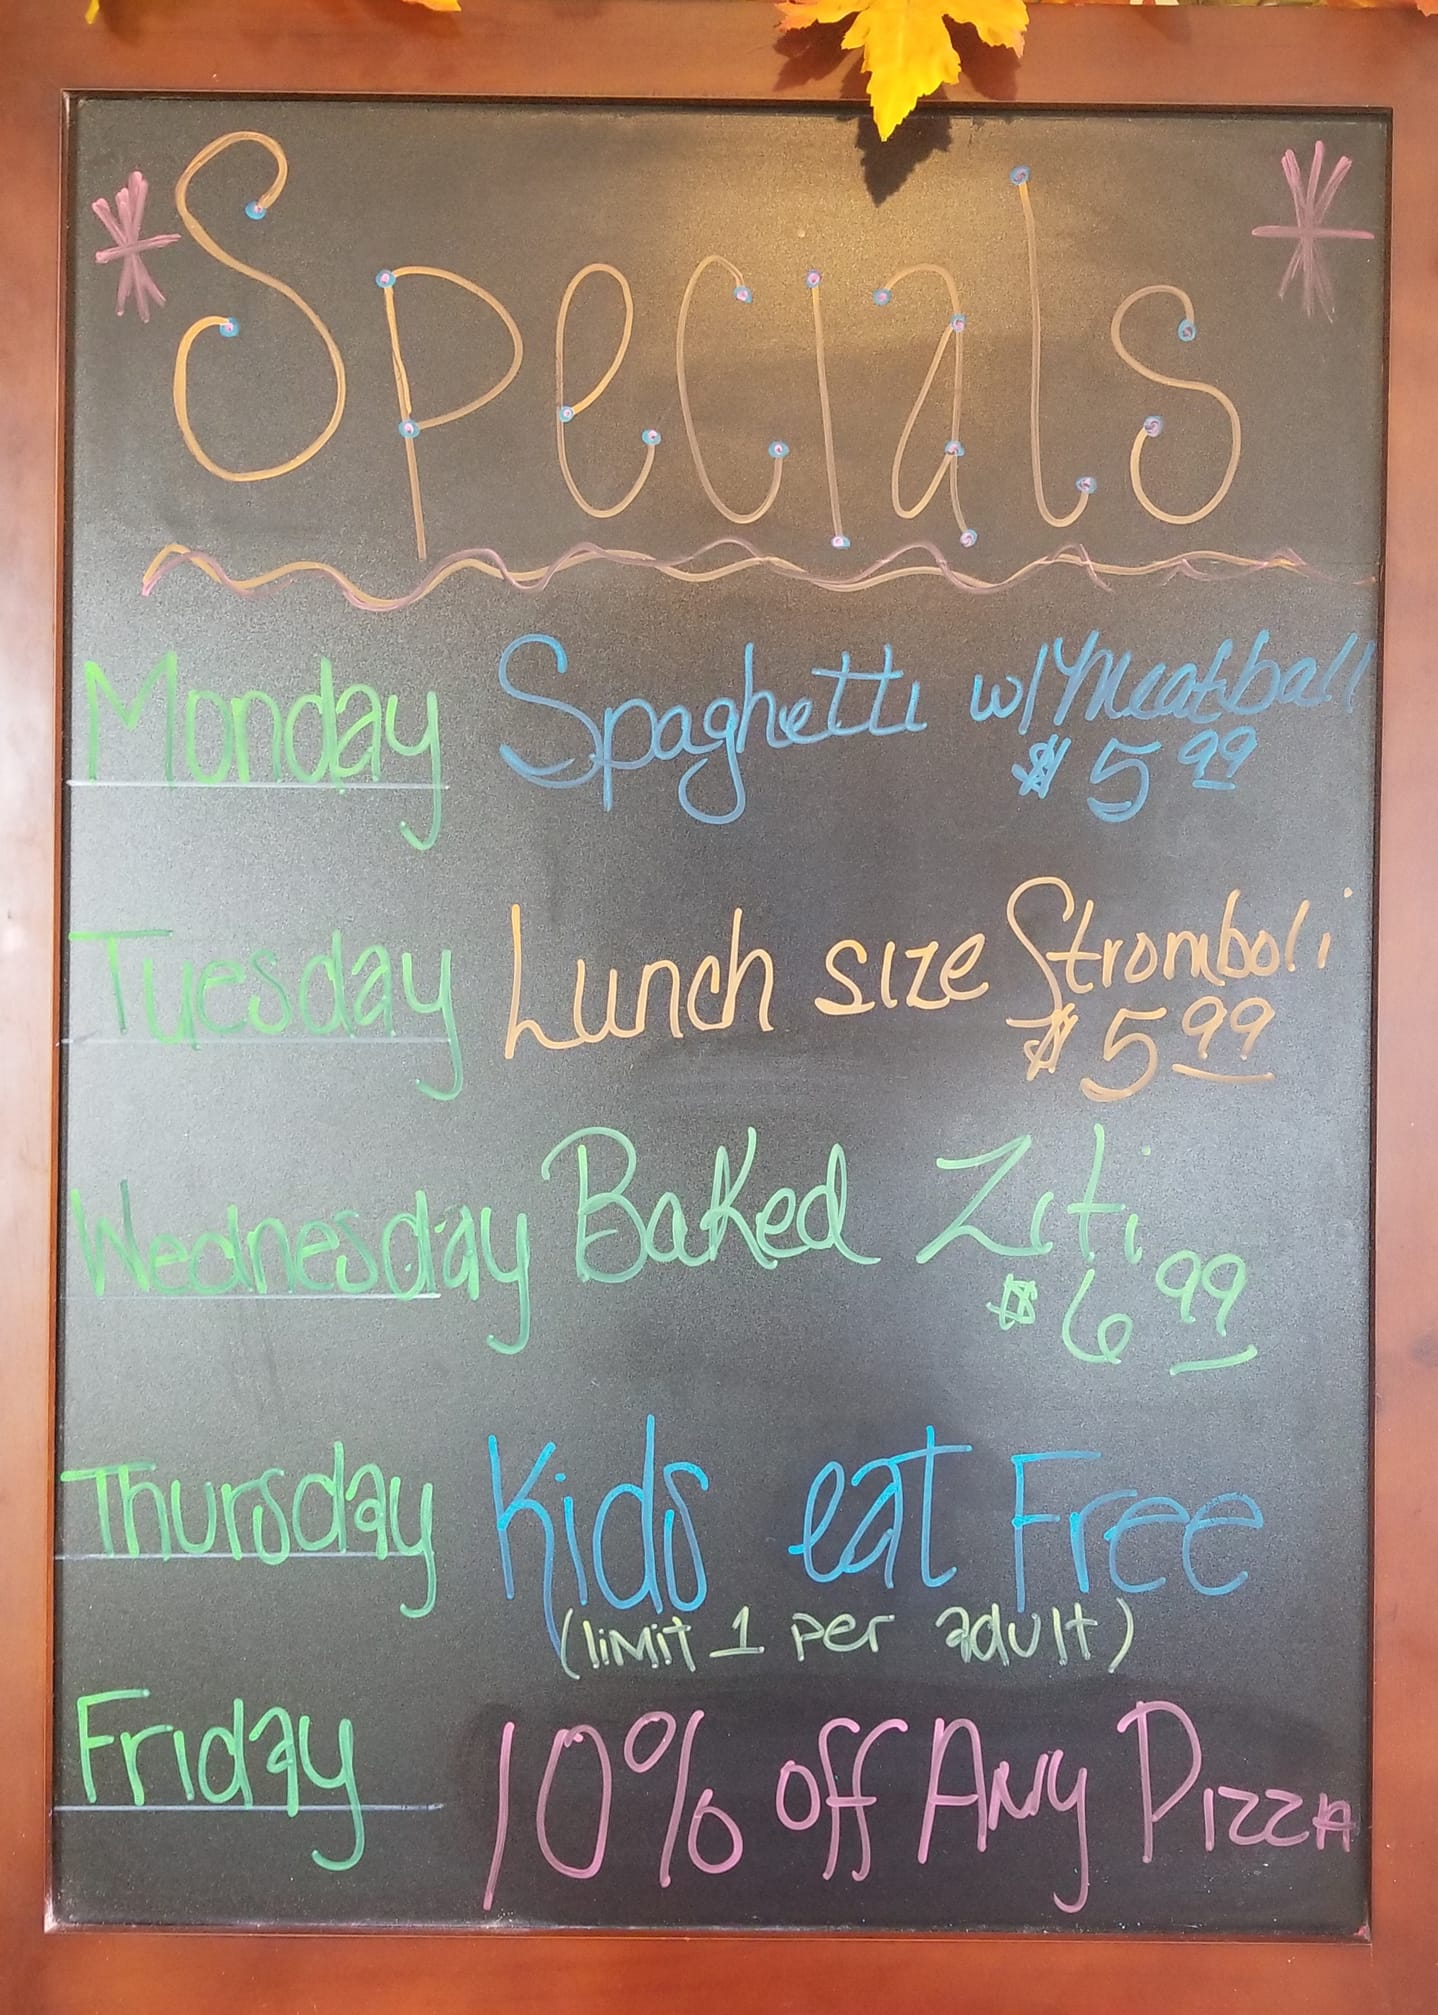 * Specials *
Monday Spaghetti w/Meatball
$5.99
Tuesday Lunch size Stromboli
$5.99
Wednesday Baked Ziti
$6.99
Thursday Kids eat Free
(limit 1 per adult)
Friday 10% off Any Pizza